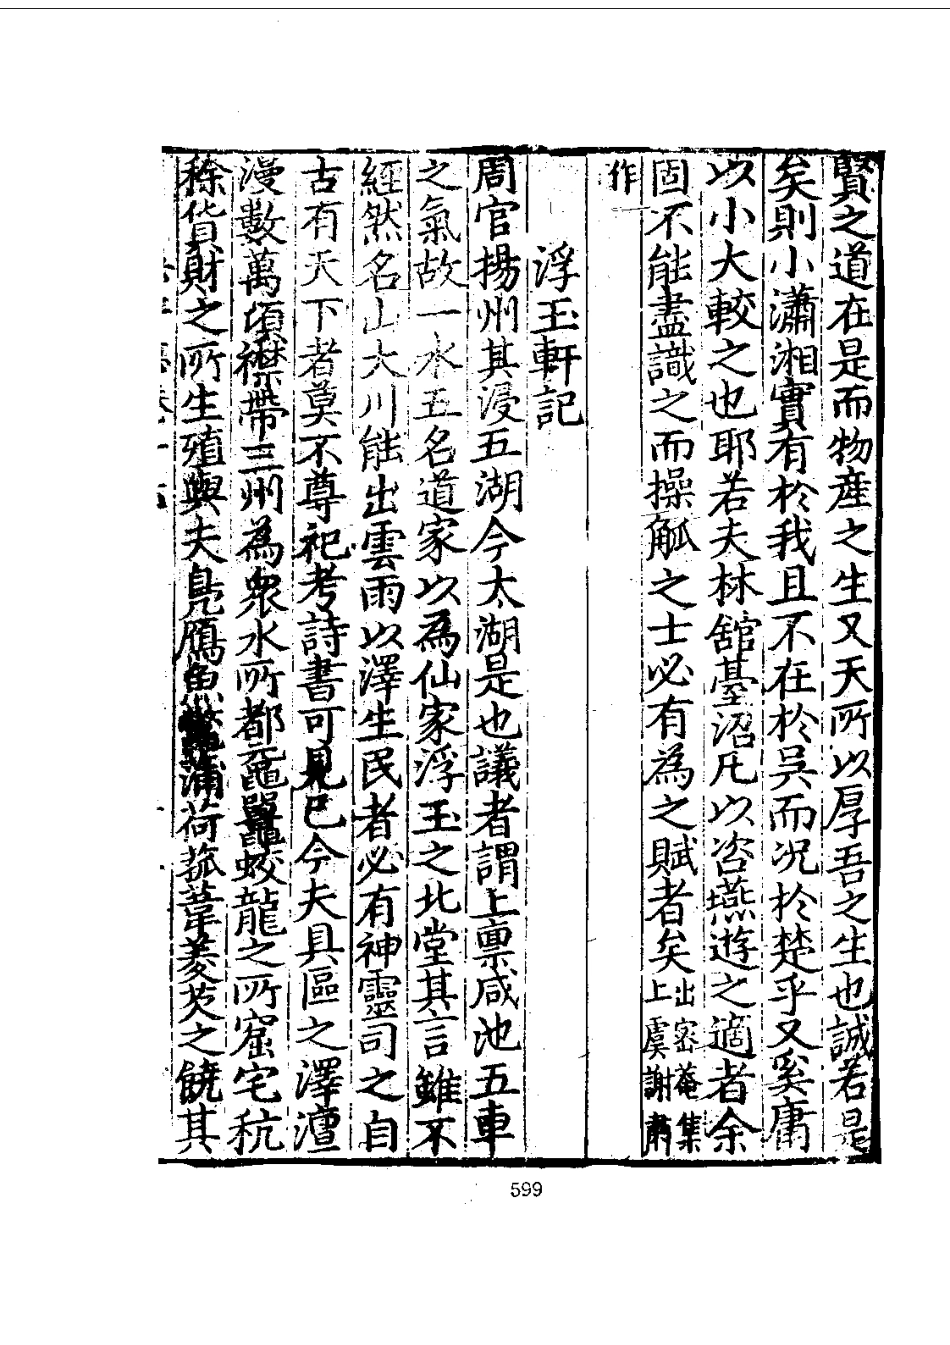 賢之道在是而物產之生又天所以厚吾之生也誠若是
矣則小瀟湘實有於我且不在於吳而况於楚乎又奚庸
以小大較之也耶若夫林舘臺沼凡以咨燕遊之適者余
固不能盡識之而操觚之士必有為之賦者矣出密菴集上虞謝肅
作
浮玉軒記
周官揚州其浸五湖今太湖是也議者謂上禀咸池五車
之氣故一水五名道家以為仙家浮玉之北堂其言雖不
經然名山大川能出雲雨以澤生民者必有神靈司之自
古有天下者莫不尊祀考詩書可見已今夫具區之澤澶
漫數萬頃襟帶三州為衆水所都黿鼉蛟龍之所窟宅秔
稌貨財之所生殖與夫鳧鴈魚 蒲荷菰葦菱芡之饒其
599